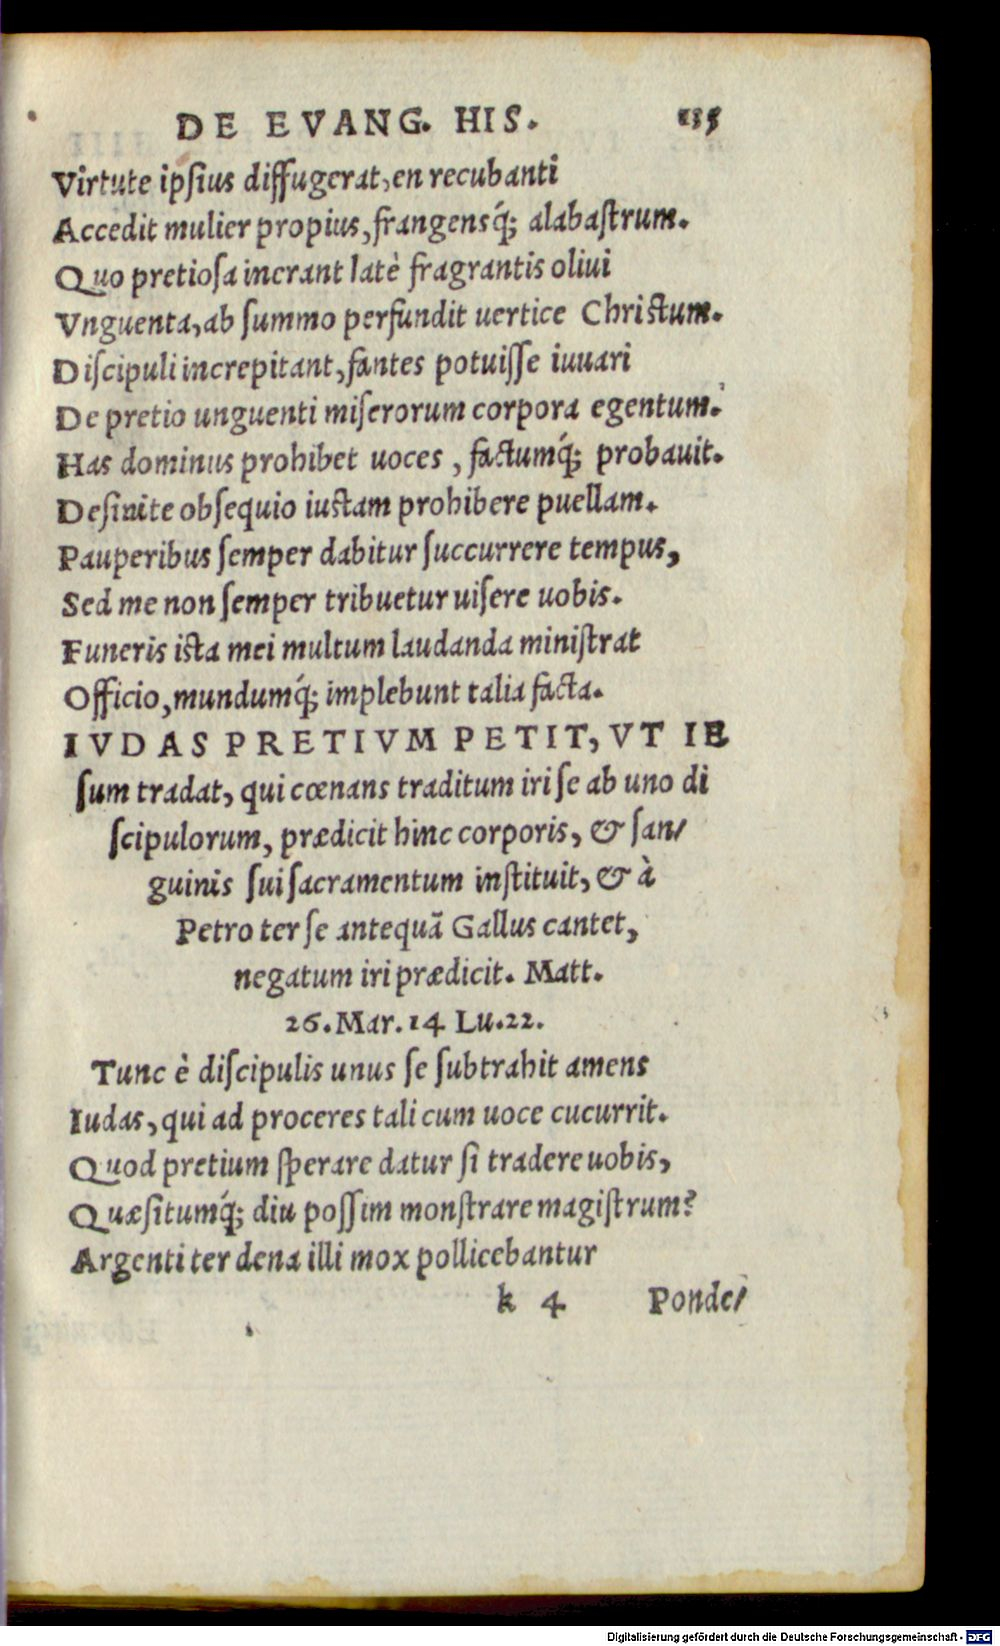 DE EVANG. HIS. 135
Virtute ipſius diffugerat, en recubanti
Accedit mulier propius, frangensq́; alabaſtrum.
Quo pretioſa incrant latè fragrantis oliui
Vnguenta, ab ſummo perfundit uertice Chriſtum.
Diſcipuli increpitant, fantes potuiſſe iuuari
De pretio unguenti miſerorum corpora egentum.
Has dominus prohibet uoces, factumq́; probauit.
Deſinite obſequio iuctam prohibere puellam.
Pauperibus ſemper dabitur ſuccurrere tempus,
Sed me non ſemper tribuetur uiſere uobis.
Funeris iſta mei multum laudanda miniſtrat
Officio, mundumq́; implebunt talia facta.
IVDAS PRETIVM PETIT, VT IE
ſum tradat, qui cœnans traditum iri ſe ab uno di
ſcipulorum, prædicit hinc corporis, & ſan/
guinis ſui ſacramentum inſtituit, & à
Petro ter ſe antequã Gallus cantet,
negatum iri prædicit. Matt.
26. Mar. 14 Lu. 22.
Tunc è diſcipulis unus ſe ſubtrahit amens
Iudas, qui ad proceres tali cum uoce cucurrit.
Quod pretium ſperare datur ſi tradere uobis,
Quæſitumq́; diu poſſim monſtrare magiſtrum?
Argenti ter dena illi mox pollicebantur
k 4 Ponde/
Digitalisierung gefördert durch die Deutsche Forschungsgemeinschaft - DFG